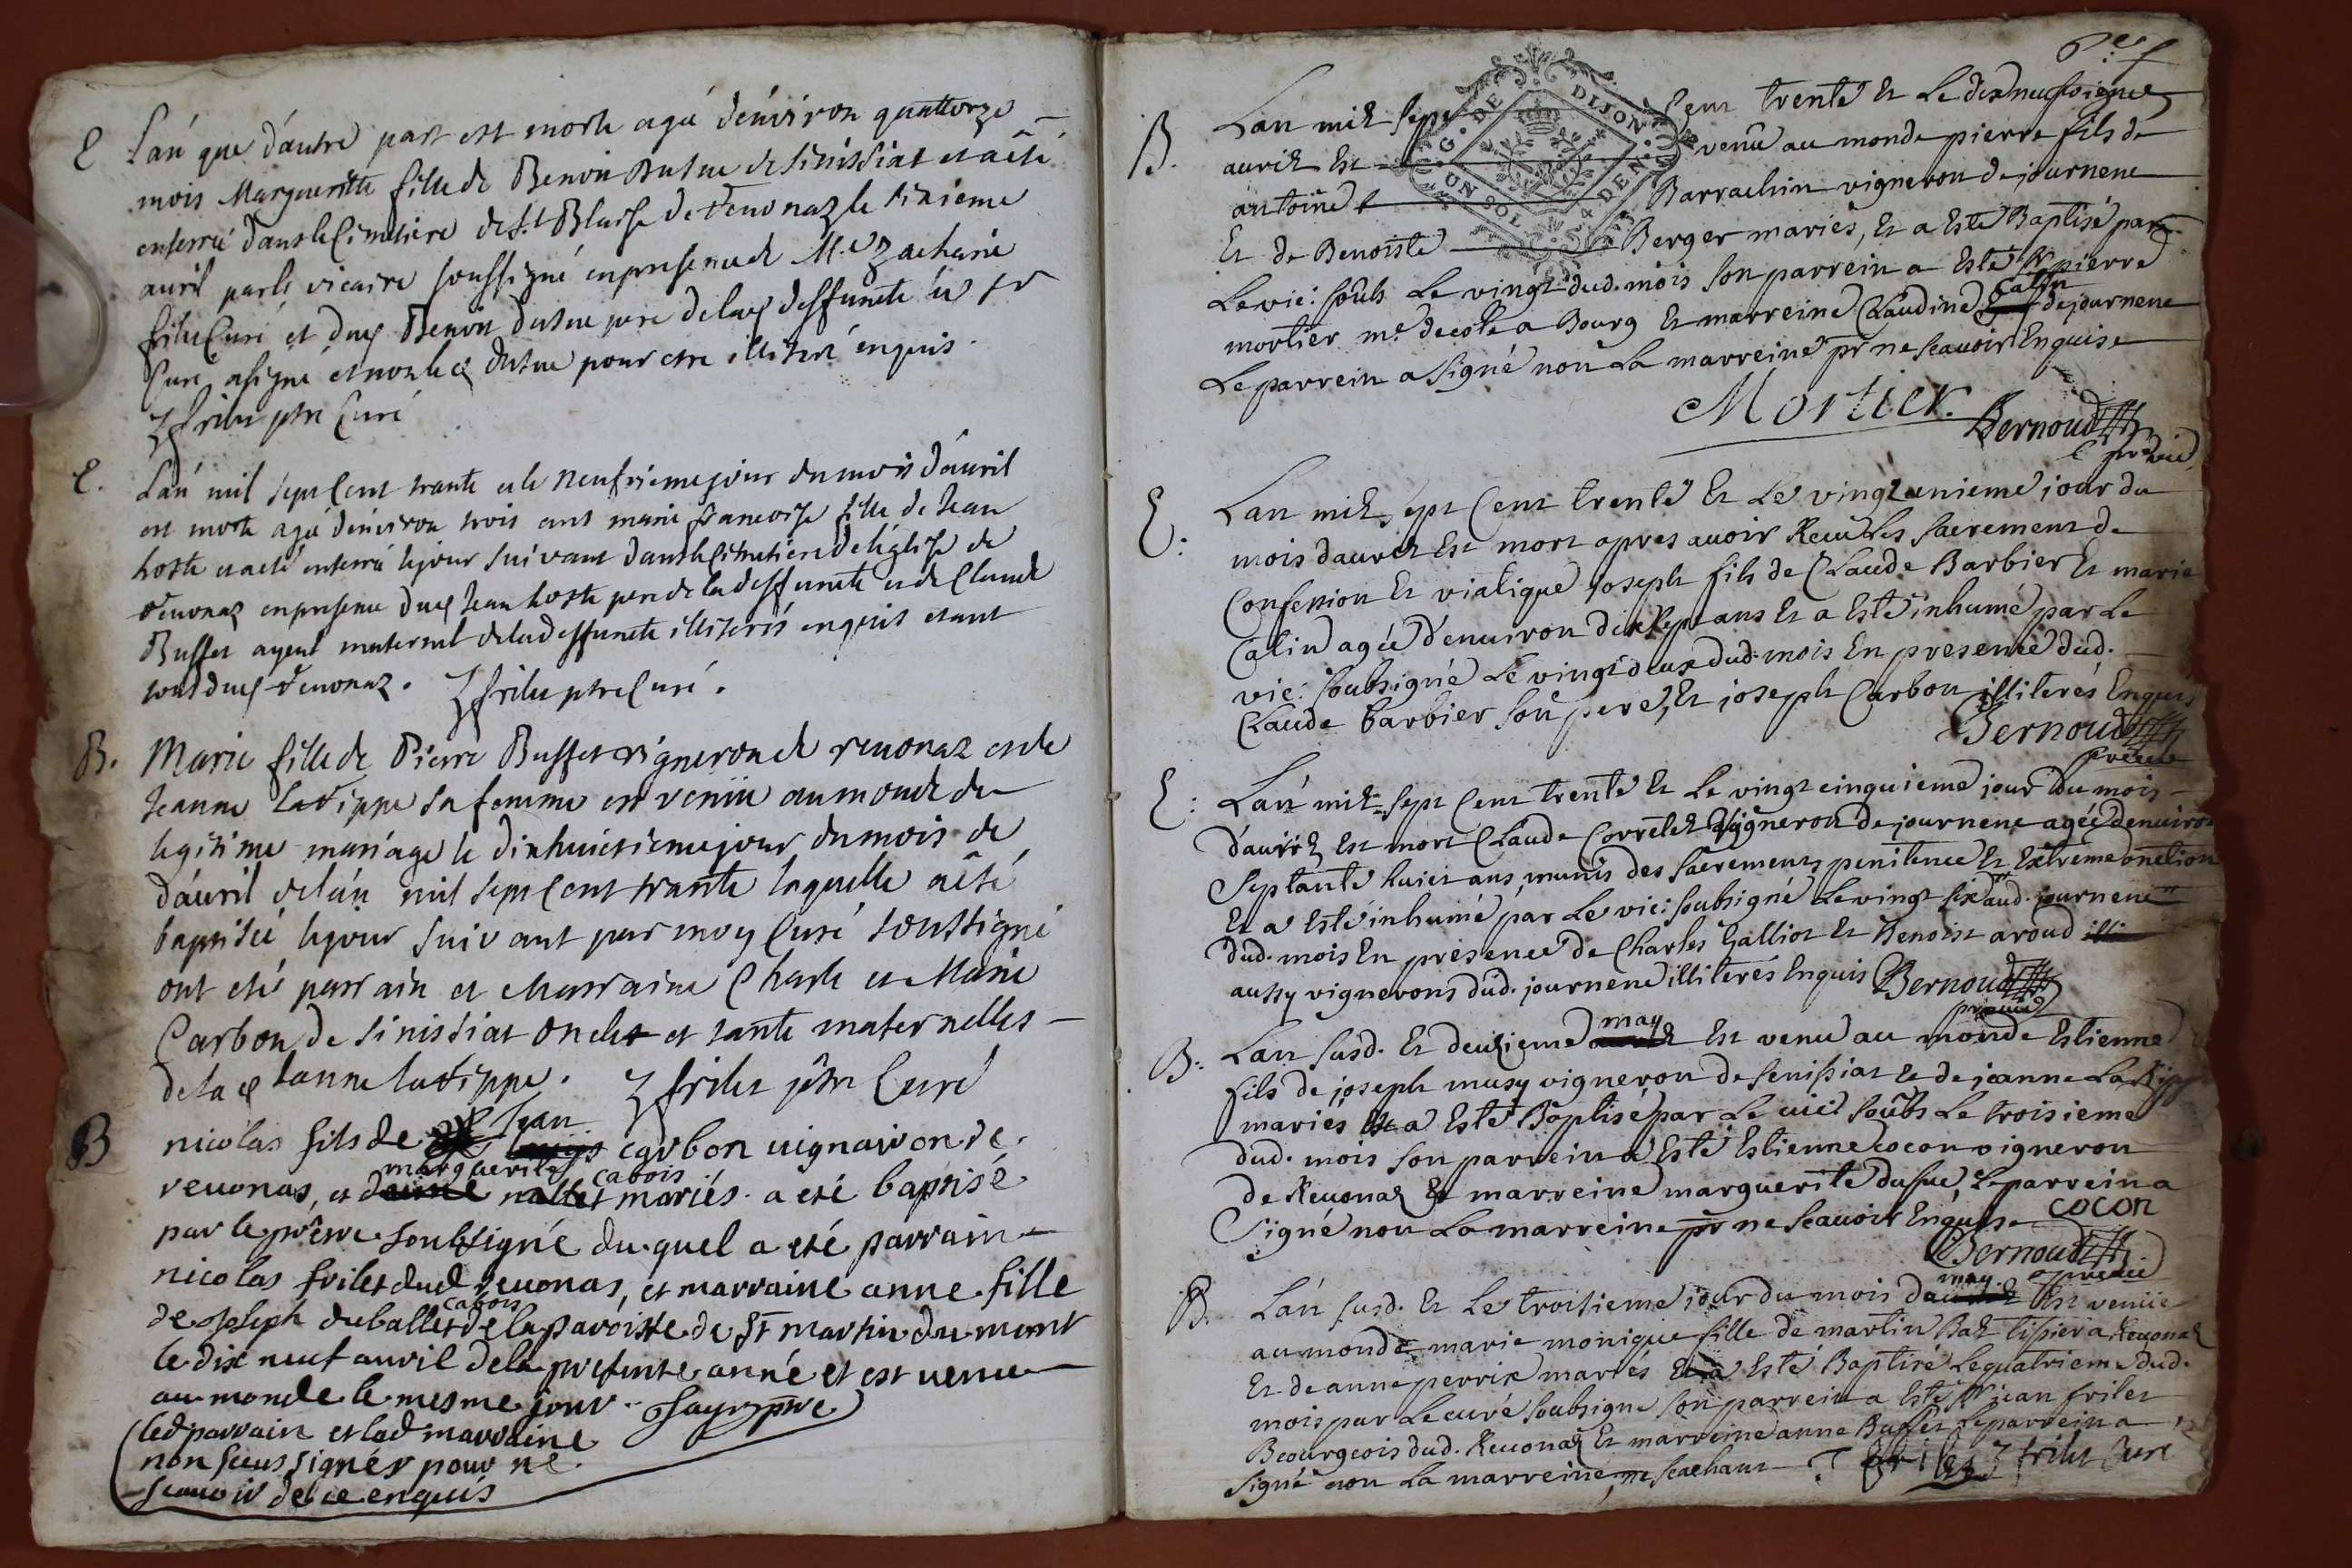 E L'an que d'autre part est morte agé d'environ quattorze
mois Margueritte fille de Benoit Dufue de Sinissiat et a eté
enterré dans le Cimetiere de St Blaise de Revonaz le sixieme
avril par le vicaire soussigné en presence de Mre Zacharie
frilet Curé et dud Benoit Dufue pere de lad deffuncte led sr
Curé a signé et non led Dufue pour etre illiteré enquis.
Z frilet ptre Curé
E. L'an mil sept cent trante et le neufvieme jour du mois d'avril
est morte agé d'environ trois ans marie francoise fille de Jean
hoste et a eté enterré le jour suivant dans le Cimetiere de l'eglise de
Revonaz en presence dud Jean hoste pere de la deffuncte et de Claude
Buffet ayeul maternel de lad deffuncte illiterés enquis etant
tous dud Revonaz. Z frilet ptre Curé.
B. Marie fille de Pierre Buffet vigneron de revonaz et de
Jeanne Latippe sa femme est veniie au monde de
legitime mariage le dixhuictieme jour du mois de
d'avril de l'an mil sept cent trante laquelle a eté
baptisée le jour suivant par moy Curé soussigné
ont eté parrain et Marraine Charle et Marie
Carbon de Sinissiat oncle et tante maternelles
de la d Janne Latippe. Z frilet ptre Curé
B nicolas fils de Jean carbon uignairon de
revonas, et marguerite cabois mariés. a eté baptisé
par le prêtre soubsigné du quel a eté parrain
nicolas frilet dud revonas, et marraine anne fille
de Joseph cabois de la paroisse de St martin du mont
le dix neuf avril de la presente année et est uenu
au monde le mesme jour
led parrain et lad marraine
non sceus signér pour ne
scavoir de ce enquis
6e f
G. DE DIJON
UN SOL 4 DEN.
B. Lan mil sept Cent trente Et Le dixneufvieme
avril Est venu au monde pierre fils de
antoine Barrachin vigneron de journene
Et de Benoiste Berger mariés, Et a Esté Baptisé par
Le vic: soubs Le vingt dud. mois son parrein a Esté Sr pierre
mortier me d'ecole a Bourg Et marreine Claudine Catin de journene
Le parrein a signé non La marreine pr ne scavoir Enquise
Mortier.
Bernoud
E: Lan mil sept Cent trente Et Le vingt unieme jour du
mois davril Est mort apres avoir Receu Les sacrement de
Confession Et viatique joseph fils de Claude Barbier Et marie
Catin agée d'enuiron dix sept ans Et a Esté inhumé par Le
vic: soubsigné Le vingt deux dud. mois En presence dud.
Claude barbier son pere, Et joseph Carbon illiterés Enquis
Bernoud
E: L'an mil sept Cent trente Et Le vingt cinquieme jour du mois
d'avril Est mort Claude Corretel vigneron de journene agée denuiron
Septante huict ans, munis des sacrements penitence Et Extreme onction
Et a Esté inhumé par Le vic: soubsigné Le vingt six aud. journene
dud. mois En presence de Charles Galliot Et Benoist aroud
aussy vignerons dud. journene illiterés Enquis Bernoud
B: Lan susd. Et deuxieme may Est venu au monde Estienne
fils de joseph musy vigneron de senissiat Et de jeanne Latippe
mariés Et a Esté Baptisé par Le vic: soubs Le troisieme
dud. mois son parrein a Esté Estienne cocon vigneron
de Revonas Et marreine marguerite dufue, Le parrein a
signé non La marreine pr ne scavoir Enquise cocon
Bernoud
B. L'an susd. Et Le troisieme jour du mois de may Est veniie
au monde marie monique fille de martin Bat tissier a Revonas
Et de anne perrix mariés Et a Esté Baptisé Le quatrieme dud.
mois par Le curé soubsigné son parrein a Esté Sr jean frilet
Beourgeois dud. Revonas Et marreine anne Buffet Le parrein a
signé non La marreine, ne scachant J frilet Z frilet Curé